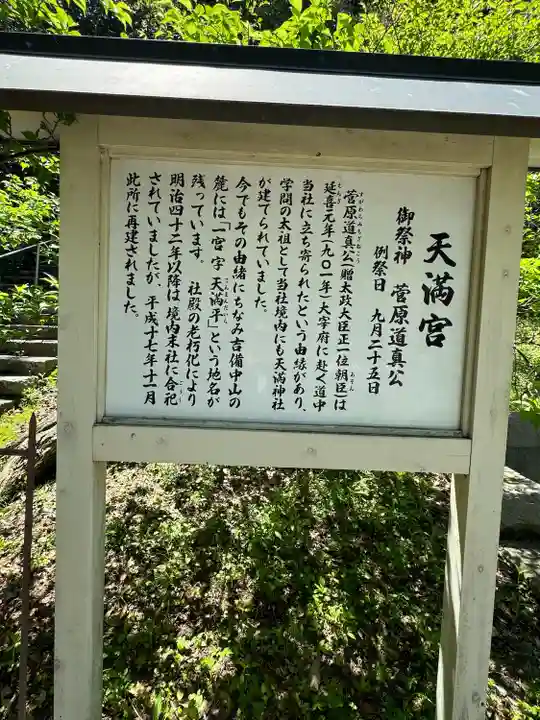 天満宮
御祭神　菅原道真公
例祭日　九月二十五日
菅原道真公(贈太政大臣正一位朝臣)は
すがわらみちざねこう
あそん
延喜元年(九〇一年)大宰府に赴く道中
えんぎ
当社に立ち寄られたという由緒があり、
学問の太祖として当社境内にも天満神社
が建てられていました。
今でもその由緒にちなみ吉備中山の
麓には「一宮 字 天満平」という地名が
残っています。　社殿の老朽化により
明治四十二年以降は 境内末社に合祀
されていましたが、平成十七年十一月
此所に再建されました。